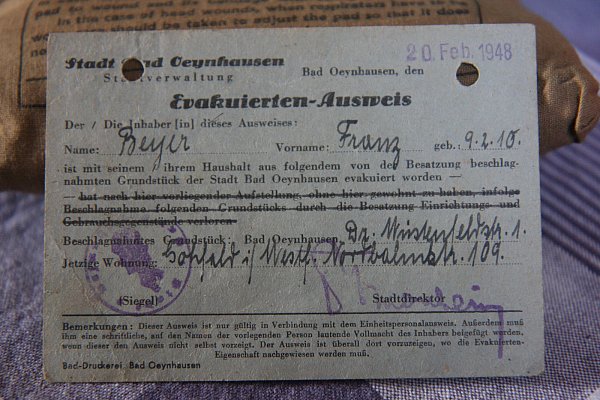 pad to wound and
In the case of head wounds, when respirators have to
should be taken to adjust the pad so that it does
Stadt Bad Oeynhausen
Stadtverwaltung
Bad Oeynhausen, den
20. Feb. 1948
Evakuierten-Ausweis
Der / Die Inhaber [in] dieses Ausweises:
Name: Beyer Vorname: Franz geb.: 9.2.10.
ist mit seinem / ihrem Haushalt aus folgendem von der Besatzung beschlag-
nahmten Grundstück der Stadt Bad Oeynhausen evakuiert worden —
— hat nach hier vorliegender Aufstellung, ohne hier gewohnt zu haben, infolge
Beschlagnahme folgenden Grundstücks durch die Besatzung Einrichtungs- und
Gebrauchsgegenstände verloren.
Beschlagnahmtes Grundstück: Bad Oeynhausen, Dr.
Jetzige Wohnung: i/Westf. 109.
(Siegel)
Stadtdirektor
Bemerkungen: Dieser Ausweis ist nur gültig in Verbindung mit dem Einheitspersonalausweis. Außerdem muß
ihm eine schriftliche, auf den Namen der vorlegenden Person lautende Vollmacht des Inhabers beigefügt werden,
wenn dieser den Ausweis nicht selbst vorzeigt. Der Ausweis ist überall dort vorzuzeigen, wo die Evakuierten-
Eigenschaft nachgewiesen werden muß.
Bad-Druckerei, Bad Oeynhausen